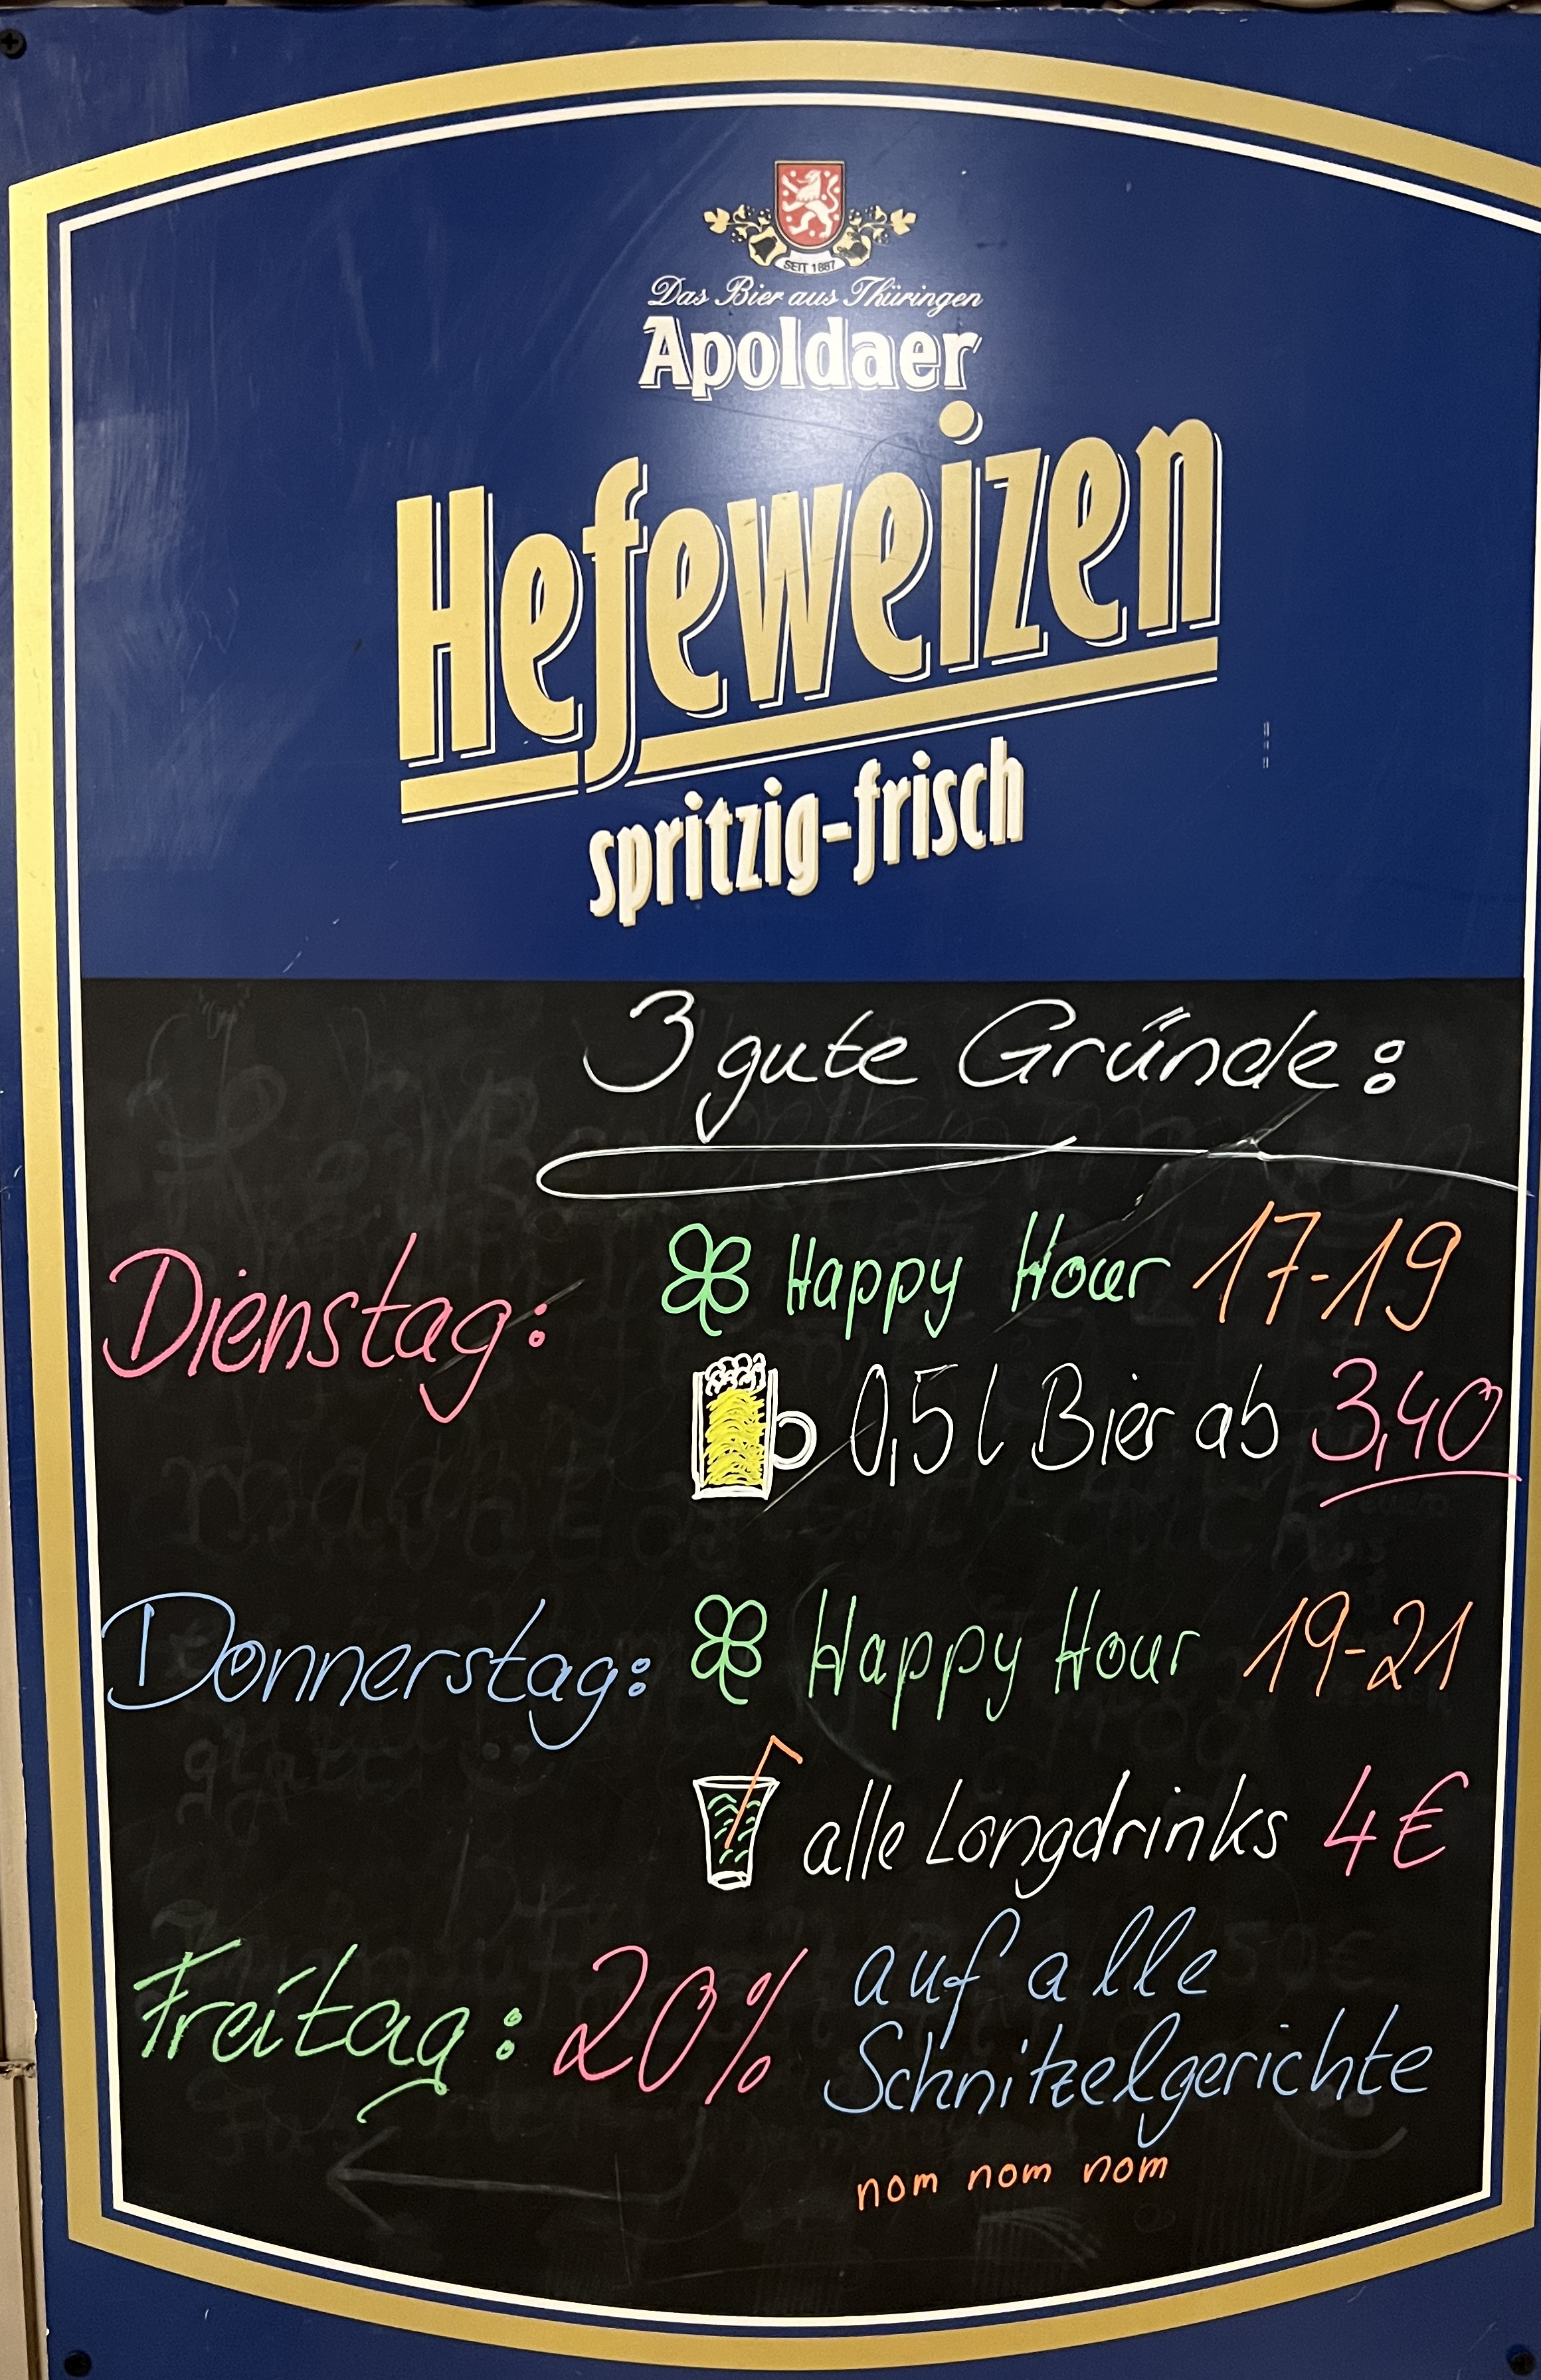 SEIT 1887
Das Bier aus Thüringen
Apoldaer
Hefeweizen
spritzig-frisch
3 gute Gründe:
Dienstag: Happy Hour 17-19
0,5 l Bier ab 3,40
Donnerstag: Happy Hour 19-21
alle Longdrinks 4€
Freitag: 20% auf alle
Schnitzelgerichte
nom nom nom